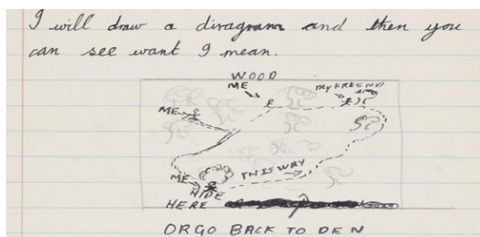 I will draw a diragram and then you
can see want I mean.
WOOD
ME
MY FREEND
ME
ME
THIS WAY
HIDE
HERE
OR GO BACK TO DEN